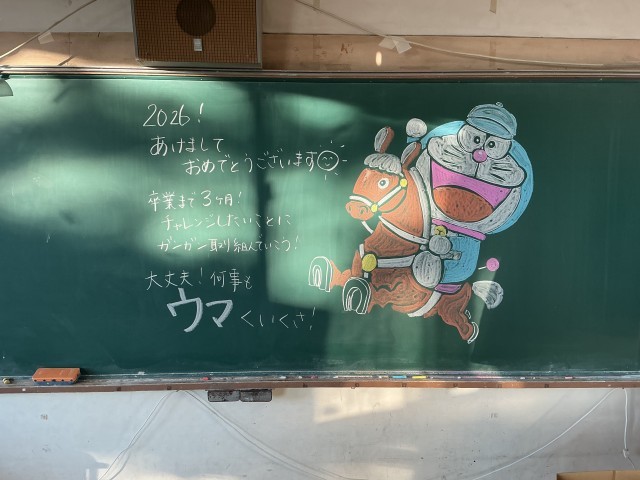 2026!
あけまして
おめでとうございます
卒業まで3ヶ月!
チャレンジしたいことに
ガンガン取り組んでいこう!
大丈夫!何事も
ウマくいくさ!